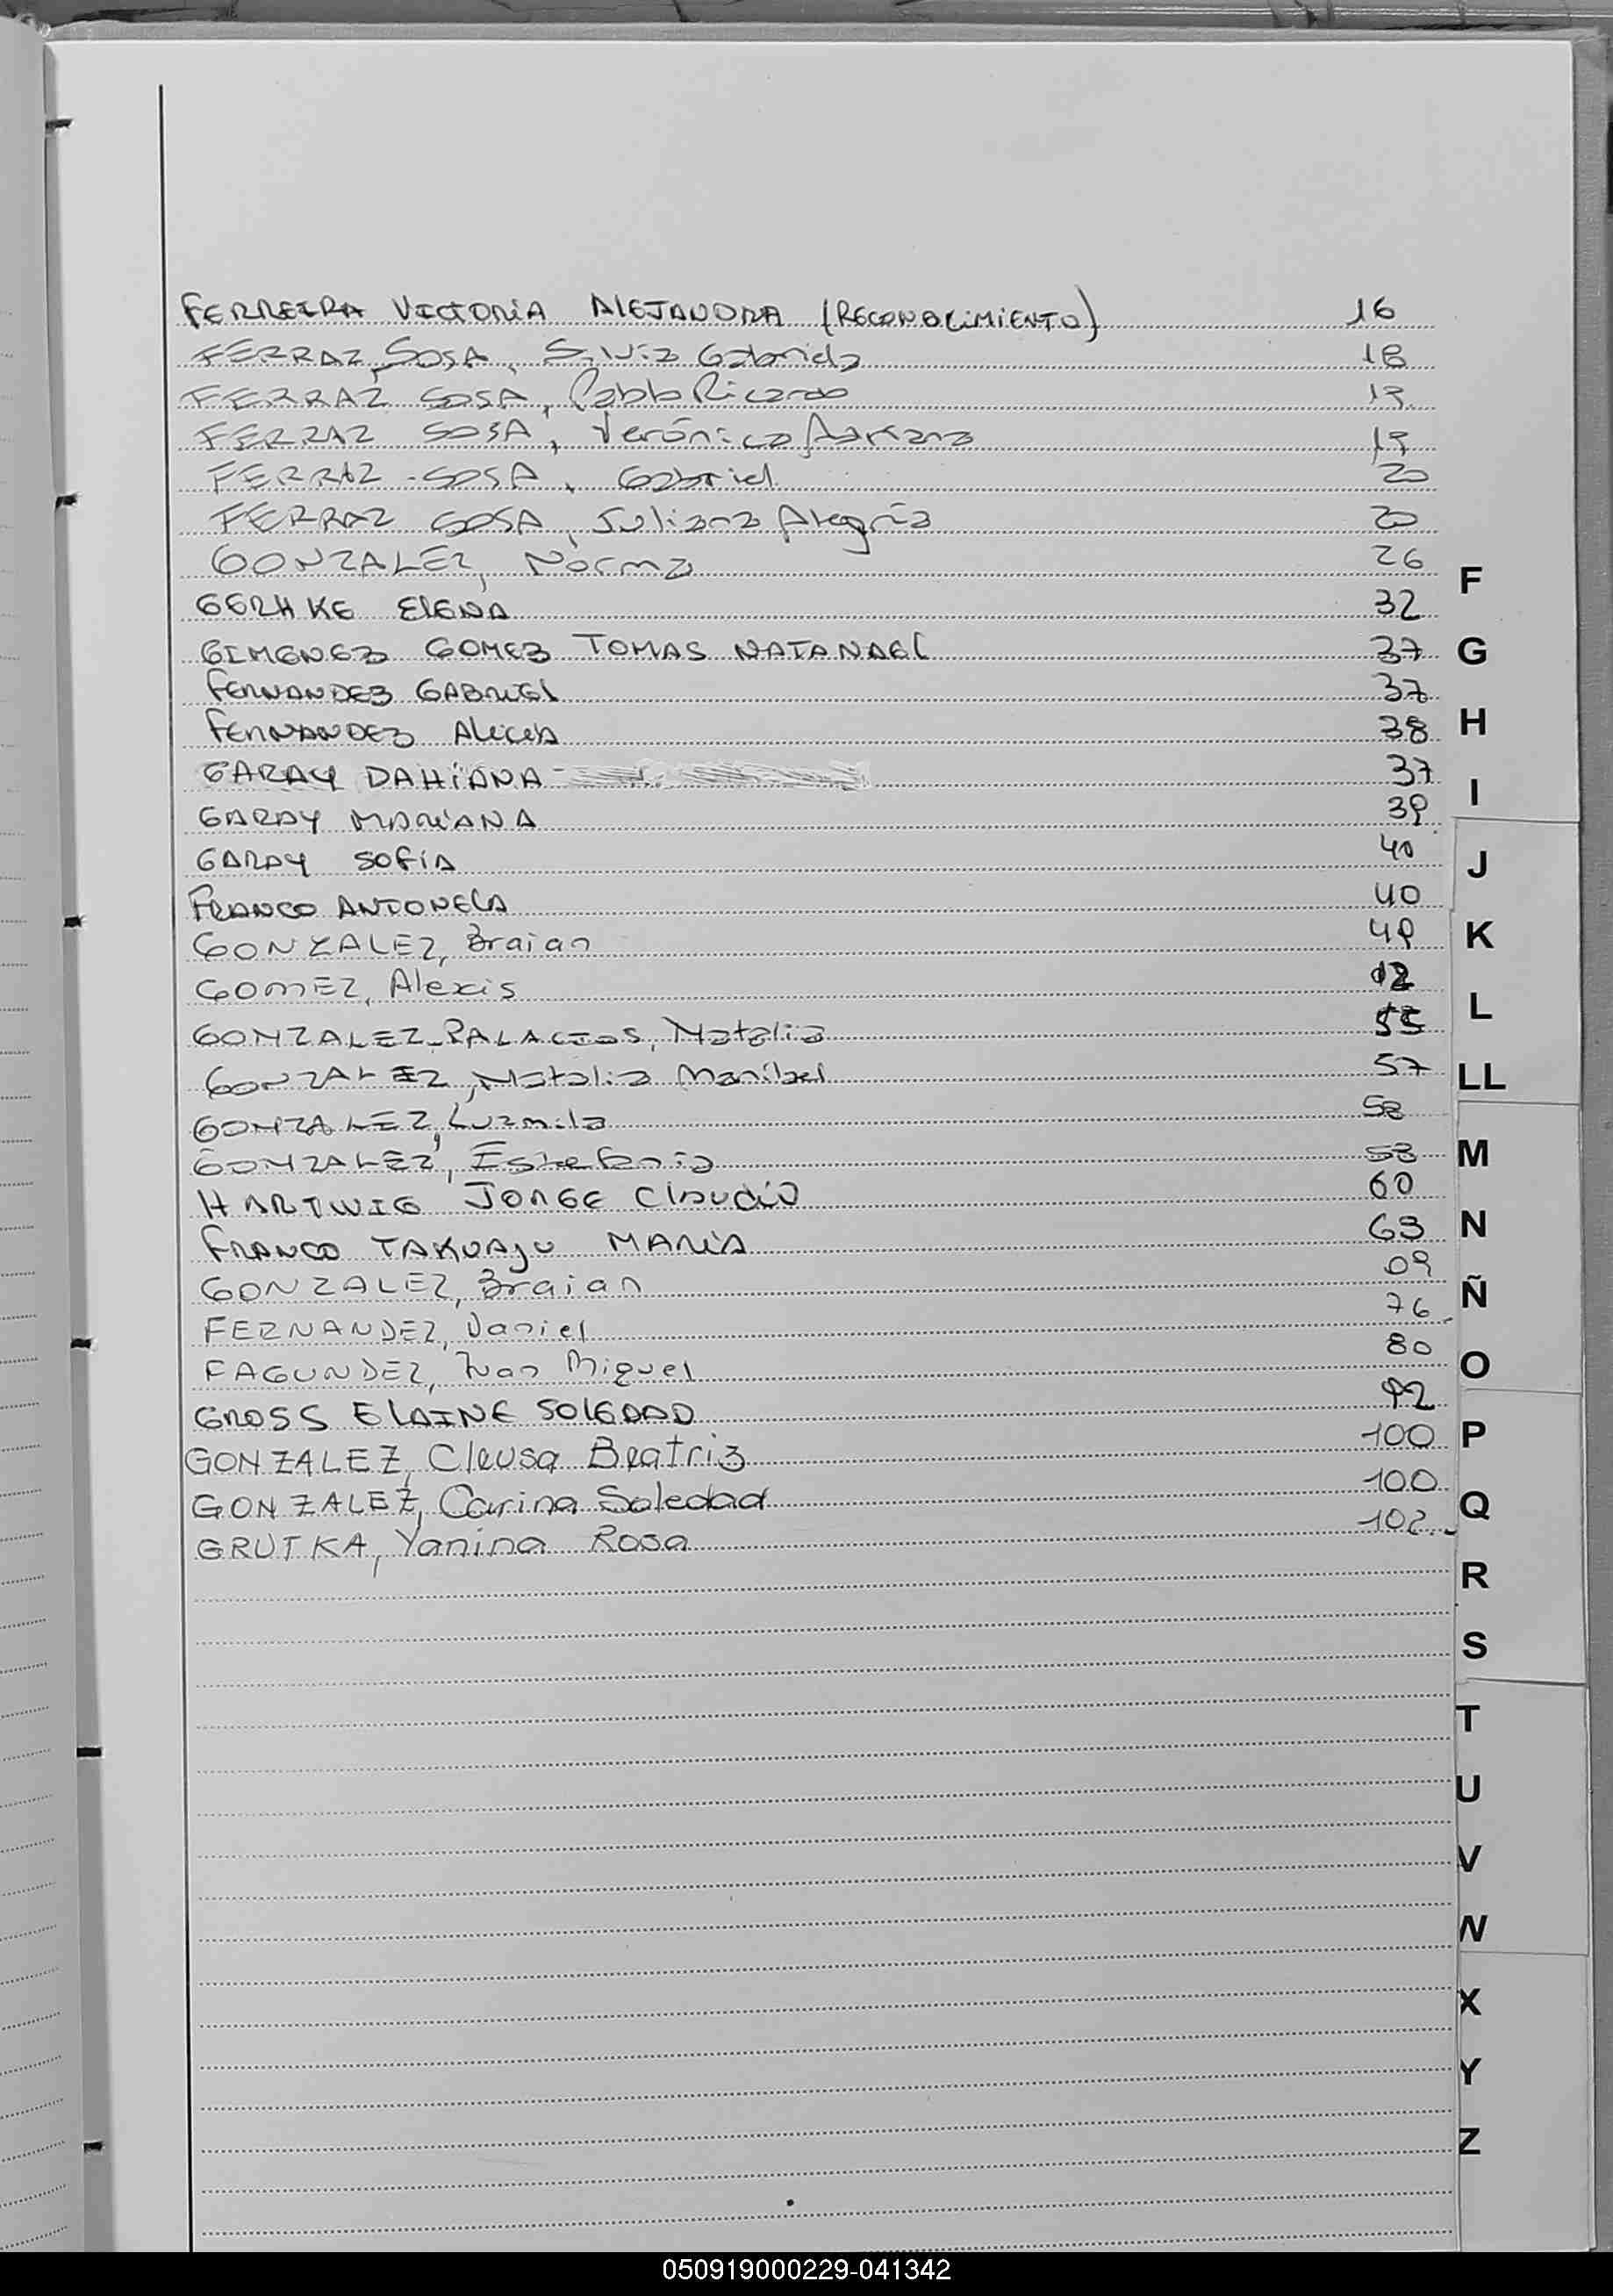 FERREIRA VICTORIA ALEJANDRA (RECONOCIMIENTO) 16
FERRAZ SOSA, Silvia Gabriela 18
FERRAZ SOSA, Pablo Ricardo 19
FERRAZ SOSA, Verónica 19
FERRAZ SOSA, Gabriel 20
FERRAZ SOSA, Juliana Alegría 20
GONZALEZ, Norma 26
GERHKE ELENA 32
GIMENEZ GOMEZ TOMAS NATANAEL 37
FERNANDEZ GABRIEL 37
FERNANDEZ ALICIA 38
GARAY DAHIANA 37
GARAY MARIANA 39
GARAY SOFIA 40
FRANCO ANTONELA 40
GONZALEZ, Braian 49
GOMEZ, Alexis 12
GONZALEZ PALACIOS, Natalia 55
GONZALEZ, Natalia Maribel 57
GONZALEZ, Luzmila 58
GONZALEZ, Estefania 58
HARTWIG JORGE CLAUDIO 60
FRANCO TAKUAJU MARIA 63
GONZALEZ, Braian 09
FERNANDEZ, Daniel 76
FAGUNDEZ, Juan Miguel 80
GROSS ELAINE SOLEDAD 92
GONZALEZ, Cleusa Beatriz 100
GONZALEZ, Carina Soledad 100
GRUTKA, Yanina Rosa 102
F
G
H
I
J
K
L
LL
M
N
Ñ
O
P
Q
R
S
T
U
V
W
X
Y
Z
050919000229-041342